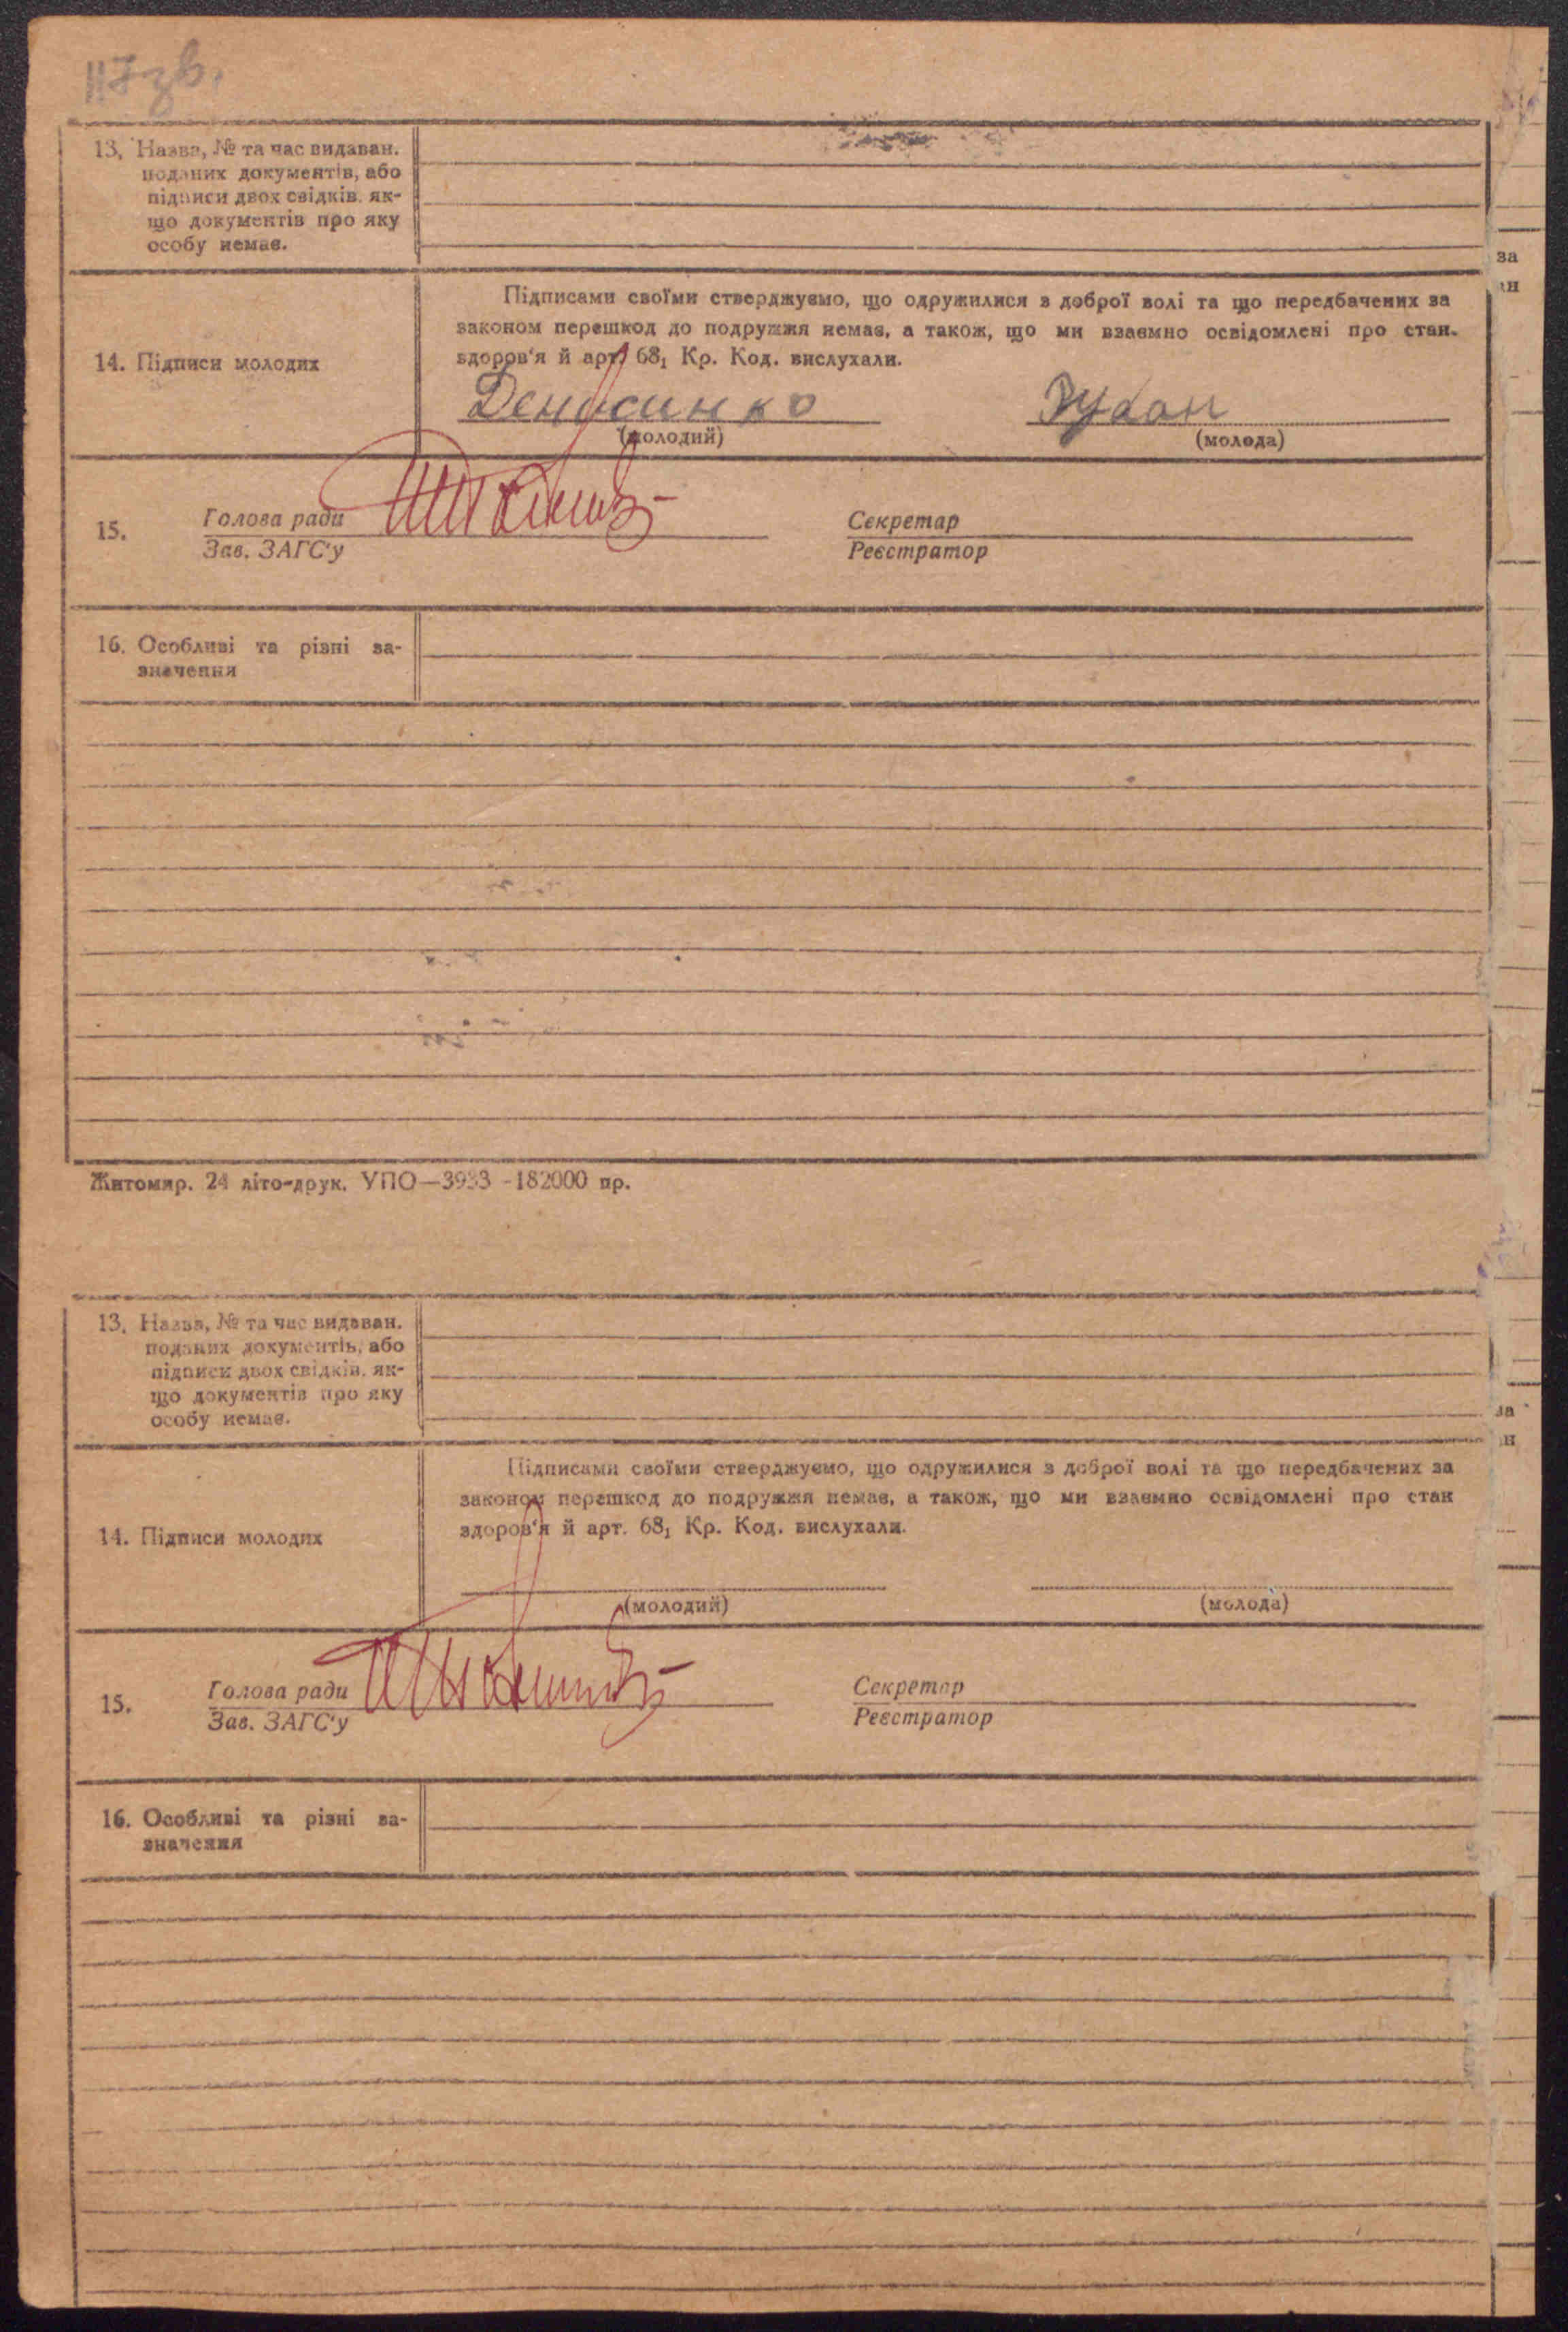 117 зв.
13. Назва, № та час видаван.
поданих документів, або
підписи двох свідків, як-
що документів про яку
особу немає.
14. Підписи молодих
Підписами своїми стверджуємо, що одружилися з доброї волі та що передбачених за
законом перешкод до подружжя немає, а також, що ми взаємно освідомлені про стан
здоров'я й арт. 68₁ Кр. Код. вислухали.
(молодий)
(молода)
15.
Голова ради
Зав. ЗАГС'у
Секретар
Реєстратор
16. Особливі та різні за-
значення
Житомир. 24 літо-друк. УПО—3933 -182000 пр.
13. Назва, № та час видаван.
поданих документів, або
підписи двох свідків, як-
що документів про яку
особу немає.
14. Підписи молодих
Підписами своїми стверджуємо, що одружилися з доброї волі та що передбачених за
законом перешкод до подружжя немає, а також, що ми взаємно освідомлені про стан
здоров'я й арт. 68₁ Кр. Код. вислухали.
(молодий)
(молода)
15.
Голова ради
Зав. ЗАГС'у
Секретар
Реєстратор
16. Особливі та різні за-
значення